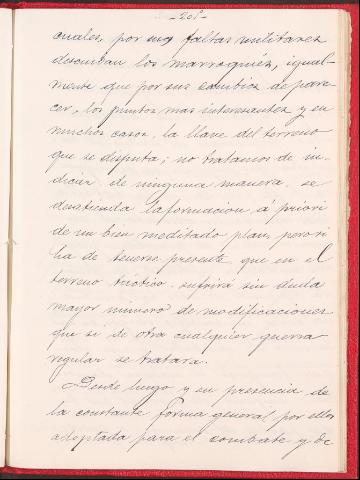 -201-
cuales, por sus faltas militares
descuidan los marroquíes, igual-
mente que por sus cambios de pare-
cer, los puntos mas interesantes y en
muchos casos, la llave del terreno
que se disputa; no tratamos de in-
dicar de ninguna manera, se
desatienda la formacion á priori
de un bien meditado plan, pero si
ha de tenerse presente que en el
terreno táctico, sufrirá sin duda
mayor número de modificaciones
que si de otra cualquier guerra
regular se tratara.
Desde luego y en presencia de
la constante forma general por ellos
adoptada para el combate y de